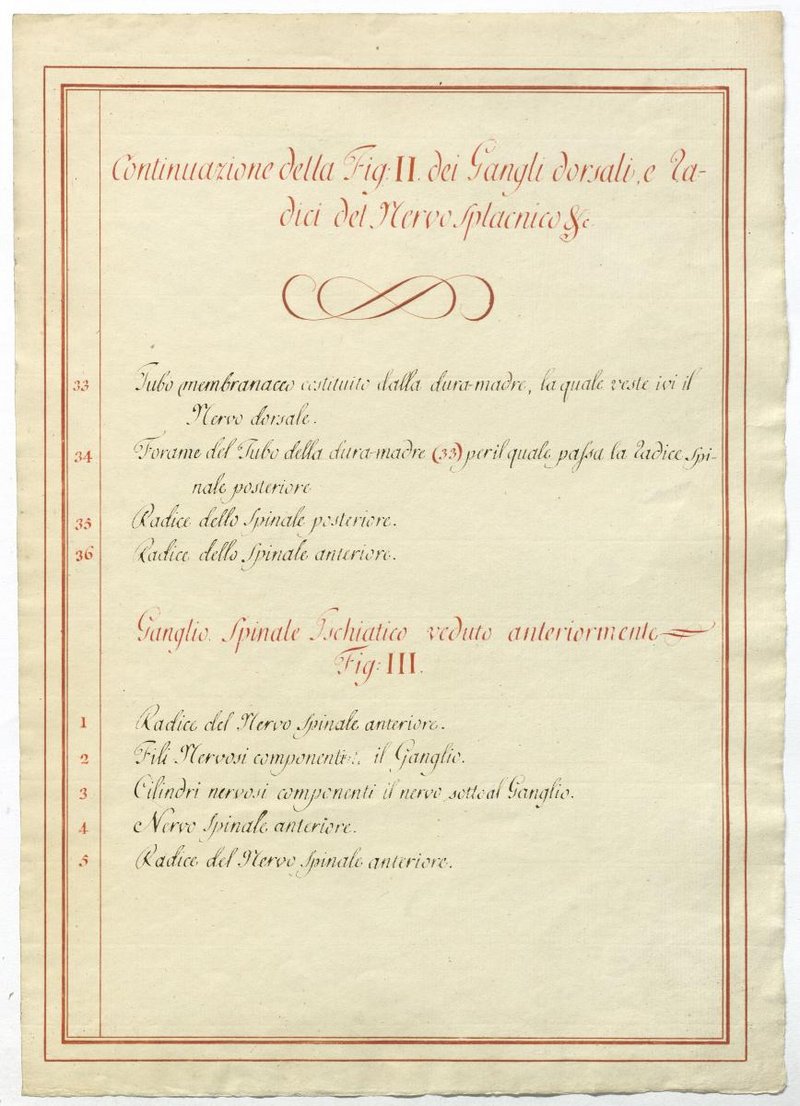 Continuazione della Fig: II. dei Gangli dorsali, e Ra-
dici del Nervo Splacnico &c
33 Tubo membranaceo costituito dalla dura-madre, la quale veste ivi il
Nervo dorsale.
34 Forame del Tubo della dura-madre (33) per il quale passa la Radice Spi-
nale posteriore
35 Radice dello Spinale posteriore.
36 Radice dello Spinale anteriore.
Ganglio Spinale Ischiatico veduto anteriormente
Fig: III.
1 Radice del Nervo Spinale anteriore.
2 Fili Nervosi componenti il Ganglio.
3 Cilindri nervosi componenti il nervo sotto al Ganglio.
4 Nervo Spinale anteriore.
5 Radice del Nervo Spinale anteriore.